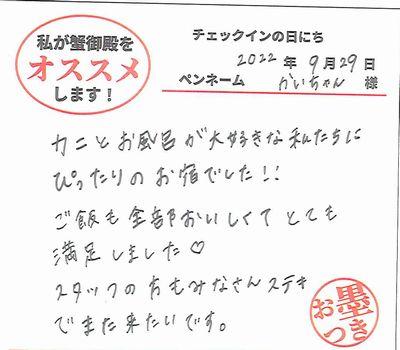 私が蟹御殿を
オススメ
します！
チェックインの日にち
2022 年 9月29日
ペンネーム かいちゃん 様
カニとお風呂が大好きな私たちに
ぴったりのお宿でした!!
ご飯も全部おいしくてとても
満足しました♡
スタッフの方もみなさんステキ
でまた来たいです。
お墨つき